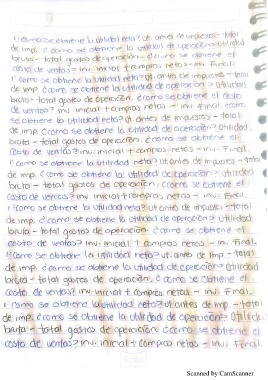 ¿Como se obtiene la utilidad neta? Ut. antes de impuestos - total
de imp. ¿como se obtiene la utilidad de operación? Utilidad
bruta - total gastos de operación. ¿como se obtiene el
costo de ventas? inv. inicial + compras netas - inv. Final.
¿como se obtiene la utilidad neta? Ut. antes de impuestos - total
de imp. ¿como se obtiene la utilidad de operación? Utilidad
bruta - total gastos de operación. ¿como se obtiene el costo
de ventas? inv. inicial + compras netas - inv. final. como
se obtiene la utilidad neta? Ut antes de impuestos - total
de imp. ¿como se obtiene la utilidad de operación? Utilidad
bruta - total gastos de operación. ¿como se obtiene el
costo de ventas? inv. inicial + compras netas - inv. Final.
¿como se obtiene la utilidad neta? Ut antes de impuestos - total
de imp. ¿como se obtiene la utilidad de operación? Utilidad
bruta - total gastos de operación. ¿como se obtiene el
costo de ventas? inv. inicial + compras netas - inv. Final.
¿como se obtiene la utilidad neta? Ut antes de impuestos - total
de imp. ¿como se obtiene la utilidad de operación? Utilidad
bruta - total gastos de operación. ¿como se obtiene el
costo de ventas? inv. inicial + compras netas - inv. Final.
¿como se obtiene la utilidad neta? Ut. antes de imp - total
de imp. ¿como se obtiene la utilidad de operación? Utilidad
bruta - total gastos de operación. ¿como se obtiene el
costo de ventas? inv. inicial + compras netas - inv. Final.
¿como se obtiene la utilidad neta? Ut antes de imp - total
de imp. ¿como se obtiene la utilidad de operación? Utilidad
bruta - total gastos de operación ¿como se obtiene el
costo de ventas? inv. inicial + compras netas - inv. Final.
Scanned by CamScanner